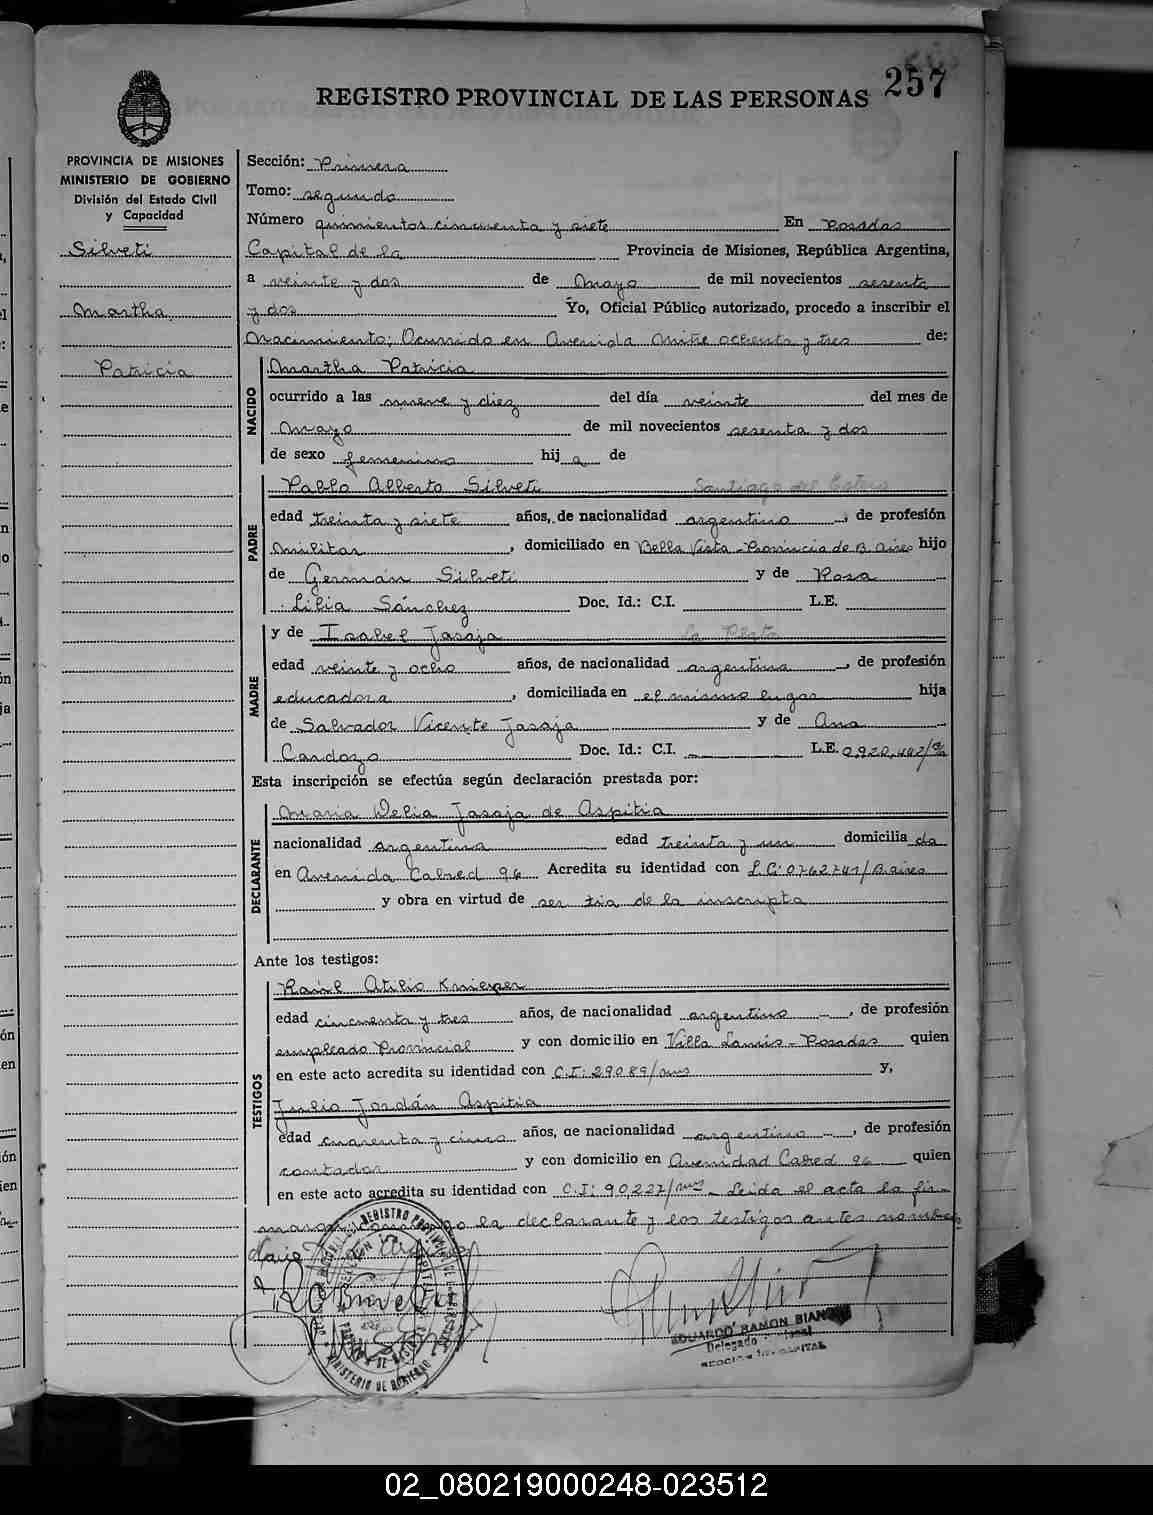 257
REGISTRO PROVINCIAL DE LAS PERSONAS
PROVINCIA DE MISIONES
MINISTERIO DE GOBIERNO
División del Estado Civil
y Capacidad
Silveti
Martha
Patricia
Sección: Primera
Tomo: segundo
Número quinientos cincuenta y siete En Posadas
Capital de la Provincia de Misiones, República Argentina,
a veinte y dos de Mayo de mil novecientos sesenta
y dos Yo, Oficial Público autorizado, procedo a inscribir el
Nacimiento; Ocurrido en Avenida Mitre ochenta y tres de:
NACIDO
Martha Patricia
ocurrido a las nueve y diez del día veinte del mes de
Mayo de mil novecientos sesenta y dos
de sexo femenino hija de
PADRE
Pablo Alberto Silveti Santiago del Estero
edad treinta y siete años, de nacionalidad argentino, de profesión
Militar, domiciliado en Bella Vista - Provincia de B. Aires hijo
de Germán Silveti y de Rosa
Lilia Sánchez Doc. Id.: C.I. L.E.
MADRE
y de Isabel Jasaja La Plata
edad veinte y ocho años, de nacionalidad argentina, de profesión
educadora, domiciliada en el mismo lugar hija
de Salvador Vicente Jasaja y de Ana
Cardozo Doc. Id.: C.I. L.E.
Esta inscripción se efectúa según declaración prestada por:
DECLARANTE
Maria Delia Jasaja de Aspitia
nacionalidad argentina edad treinta y un domiciliada
en Avenida Cabred 96 Acredita su identidad con L.C: 0762741/B.aires
y obra en virtud de ser tia de la inscripta
Ante los testigos:
TESTIGOS
Raúl Atilio
edad cincuenta y tres años, de nacionalidad argentino, de profesión
empleado Provincial y con domicilio en Villa Lanús - Posadas quien
en este acto acredita su identidad con C.I: 29089/mns y,
Julio Jordán Aspitia
edad cuarenta y cinco años, de nacionalidad argentino, de profesión
contador y con domicilio en Avenidad Cabred 96 quien
en este acto acredita su identidad con C.I: 90,227/mns - Leida el acta la fir-
la declarante y los testigos antes nombra
REGISTRO PROVINCIAL DE LAS PERSONAS
MINISTERIO DE GOBIERNO
EDUARDO RAMON BIANCHI
Delegado
02_080219000248-023512